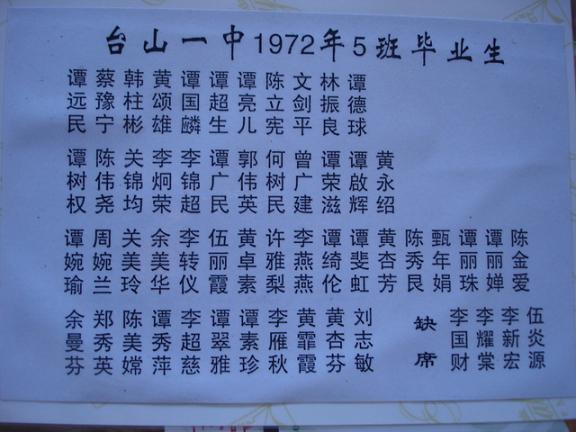 台山一中1972年5班毕业生
谭远民
蔡豫宁
韩柱彬
黄颂雄
谭国麟
谭超生
谭亮儿
陈立宪
文剑平
林振良
谭德球
谭树权
陈伟尧
关锦均
李炯荣
李锦超
谭广民
郭伟英
何树民
曾广建
谭荣滋
谭啟辉
黄永绍
谭婉瑜
周婉兰
关美玲
余美华
李转仪
伍丽霞
黄卓素
许雅梨
李燕燕
谭绮伦
谭斐虹
黄杏芳
陈秀艮
甄年娟
谭丽珠
谭丽婵
陈金爱
余曼芬
郑秀英
陈美嫦
谭秀萍
李超慈
谭翠雅
谭素珍
李雁秋
黄霏霞
黄杏芬
刘志敏
缺席
李国财
李耀棠
李新宏
伍炎源